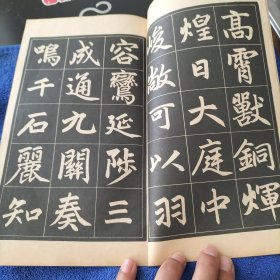 高霄獸銅煇
煌日大庭中
俊故可以羽
容鸞延陟三
成通九關奏
鳴千石麗知